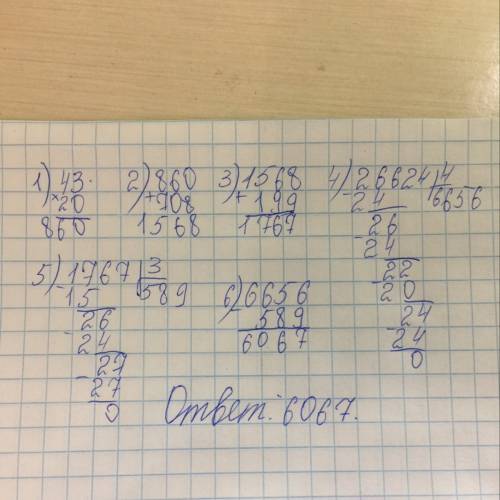 1) 43.
× 20
860
2) 860
+ 708
1568
3) 1568
+ 199
1767
4) 26624 | 4
- 24 6656
26
- 24
22
- 20
24
- 24
0
5) 1767 | 3
- 15 589
26
- 24
27
- 27
0
6) 6656
- 589
6067
Ответ: 6067.